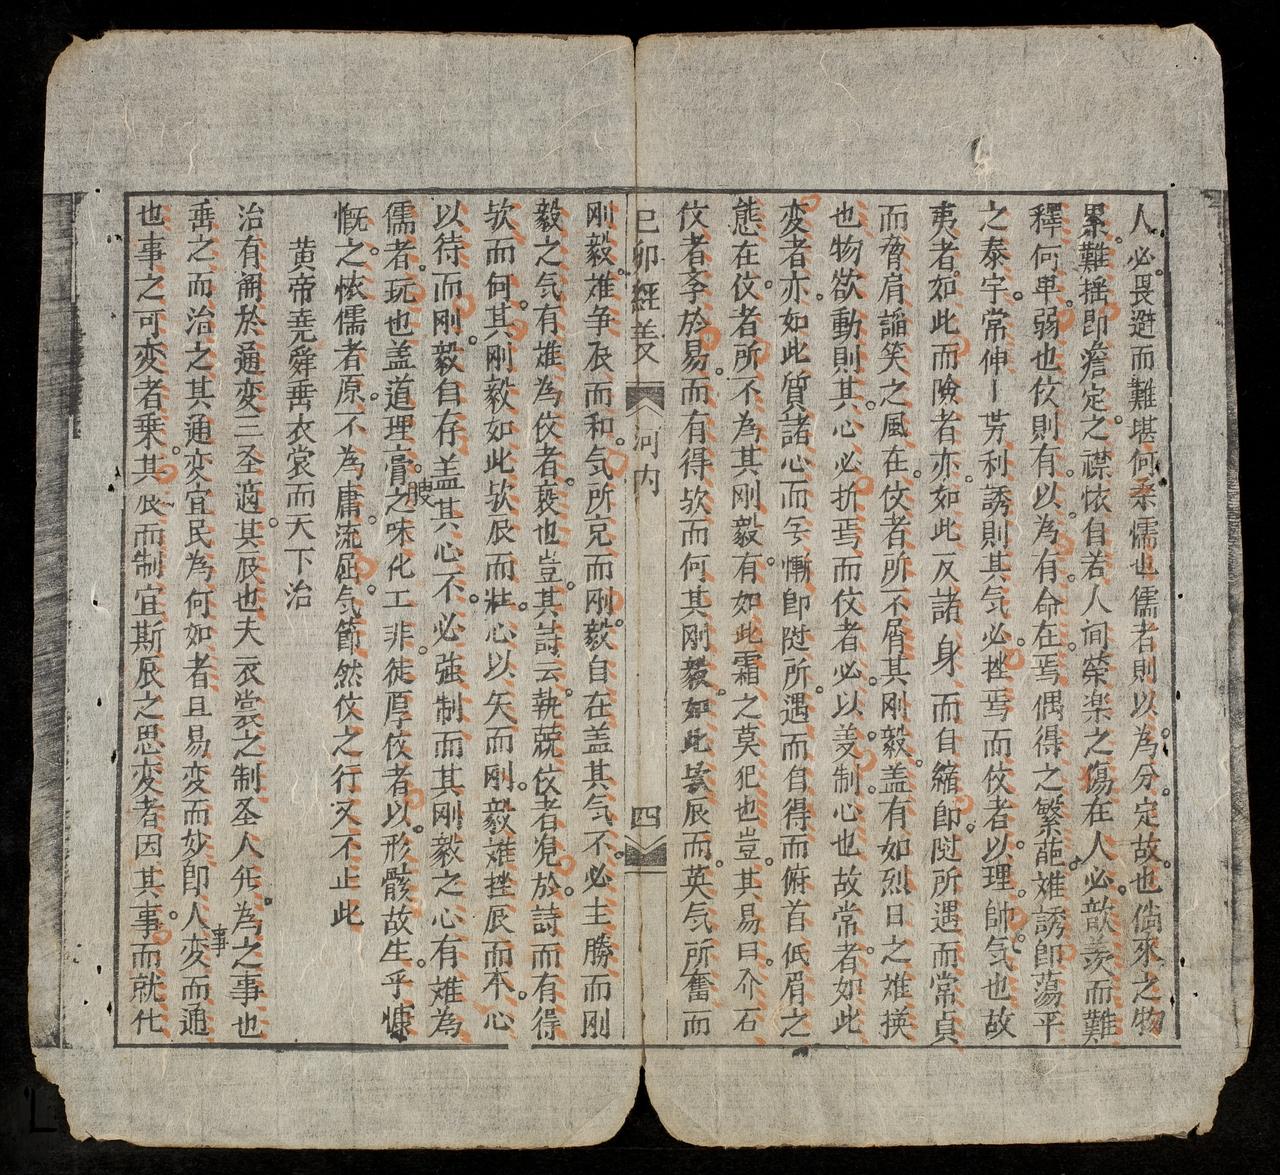 人必畏避而難堪何柔懦也儒者則以為分定故也倘來之物
累難揺即澹定之襟怀自若人间荣楽之傷在人必歆羨而難
釋何卑弱也伩則有以為有命在焉偶得之繁葩难誘即蕩平
之泰宇常伸丨芳利誘則其気必挫焉而伩者以理帥気也故
夷者如此而險者亦如此反諸身而自縮即𨑗所遇而常貞
而脅肩謟笑之風在伩者所不屑其刚毅盖有如烈日之难揉
也物欲動則其心必折焉而伩者必以羑制心也故常者如此
变者亦如此質諸心而無慚即𨑗所遇而自得而俯首低眉之
態在伩者所不為其刚毅有如此霜之莫犯也豈其易曰介石
伩者李於易而有得欤而何其刚毅如此欤辰而英気所奮而
己卯經義 河内 四
刚毅难争辰而和気所克而刚毅自在盖其気不必主勝而刚
毅之気有难為伩者衰也豈其詩云執兢伩者覌於詩而有得
欤而何其刚毅如此欤辰而壮心以矢而刚毅难挫辰而本心
以待而刚毅自存盖其心不必強制而其刚毅之心有难為
儒者玩也盖道理膏腴之味化工非徒厚伩者以形骸故生乎慷
慨之怀儒者原不為庸流屈気節然伩之行又不止此
黄帝尭舜垂衣裳而天下治
治有開於通变三圣適其辰也夫衣裳之制圣人非為之事也
垂之而治之其通变宜民為何如者且易变而妙即人事变而通
也事之可变者乗其辰而制宜斯辰之思变者因其事而就化